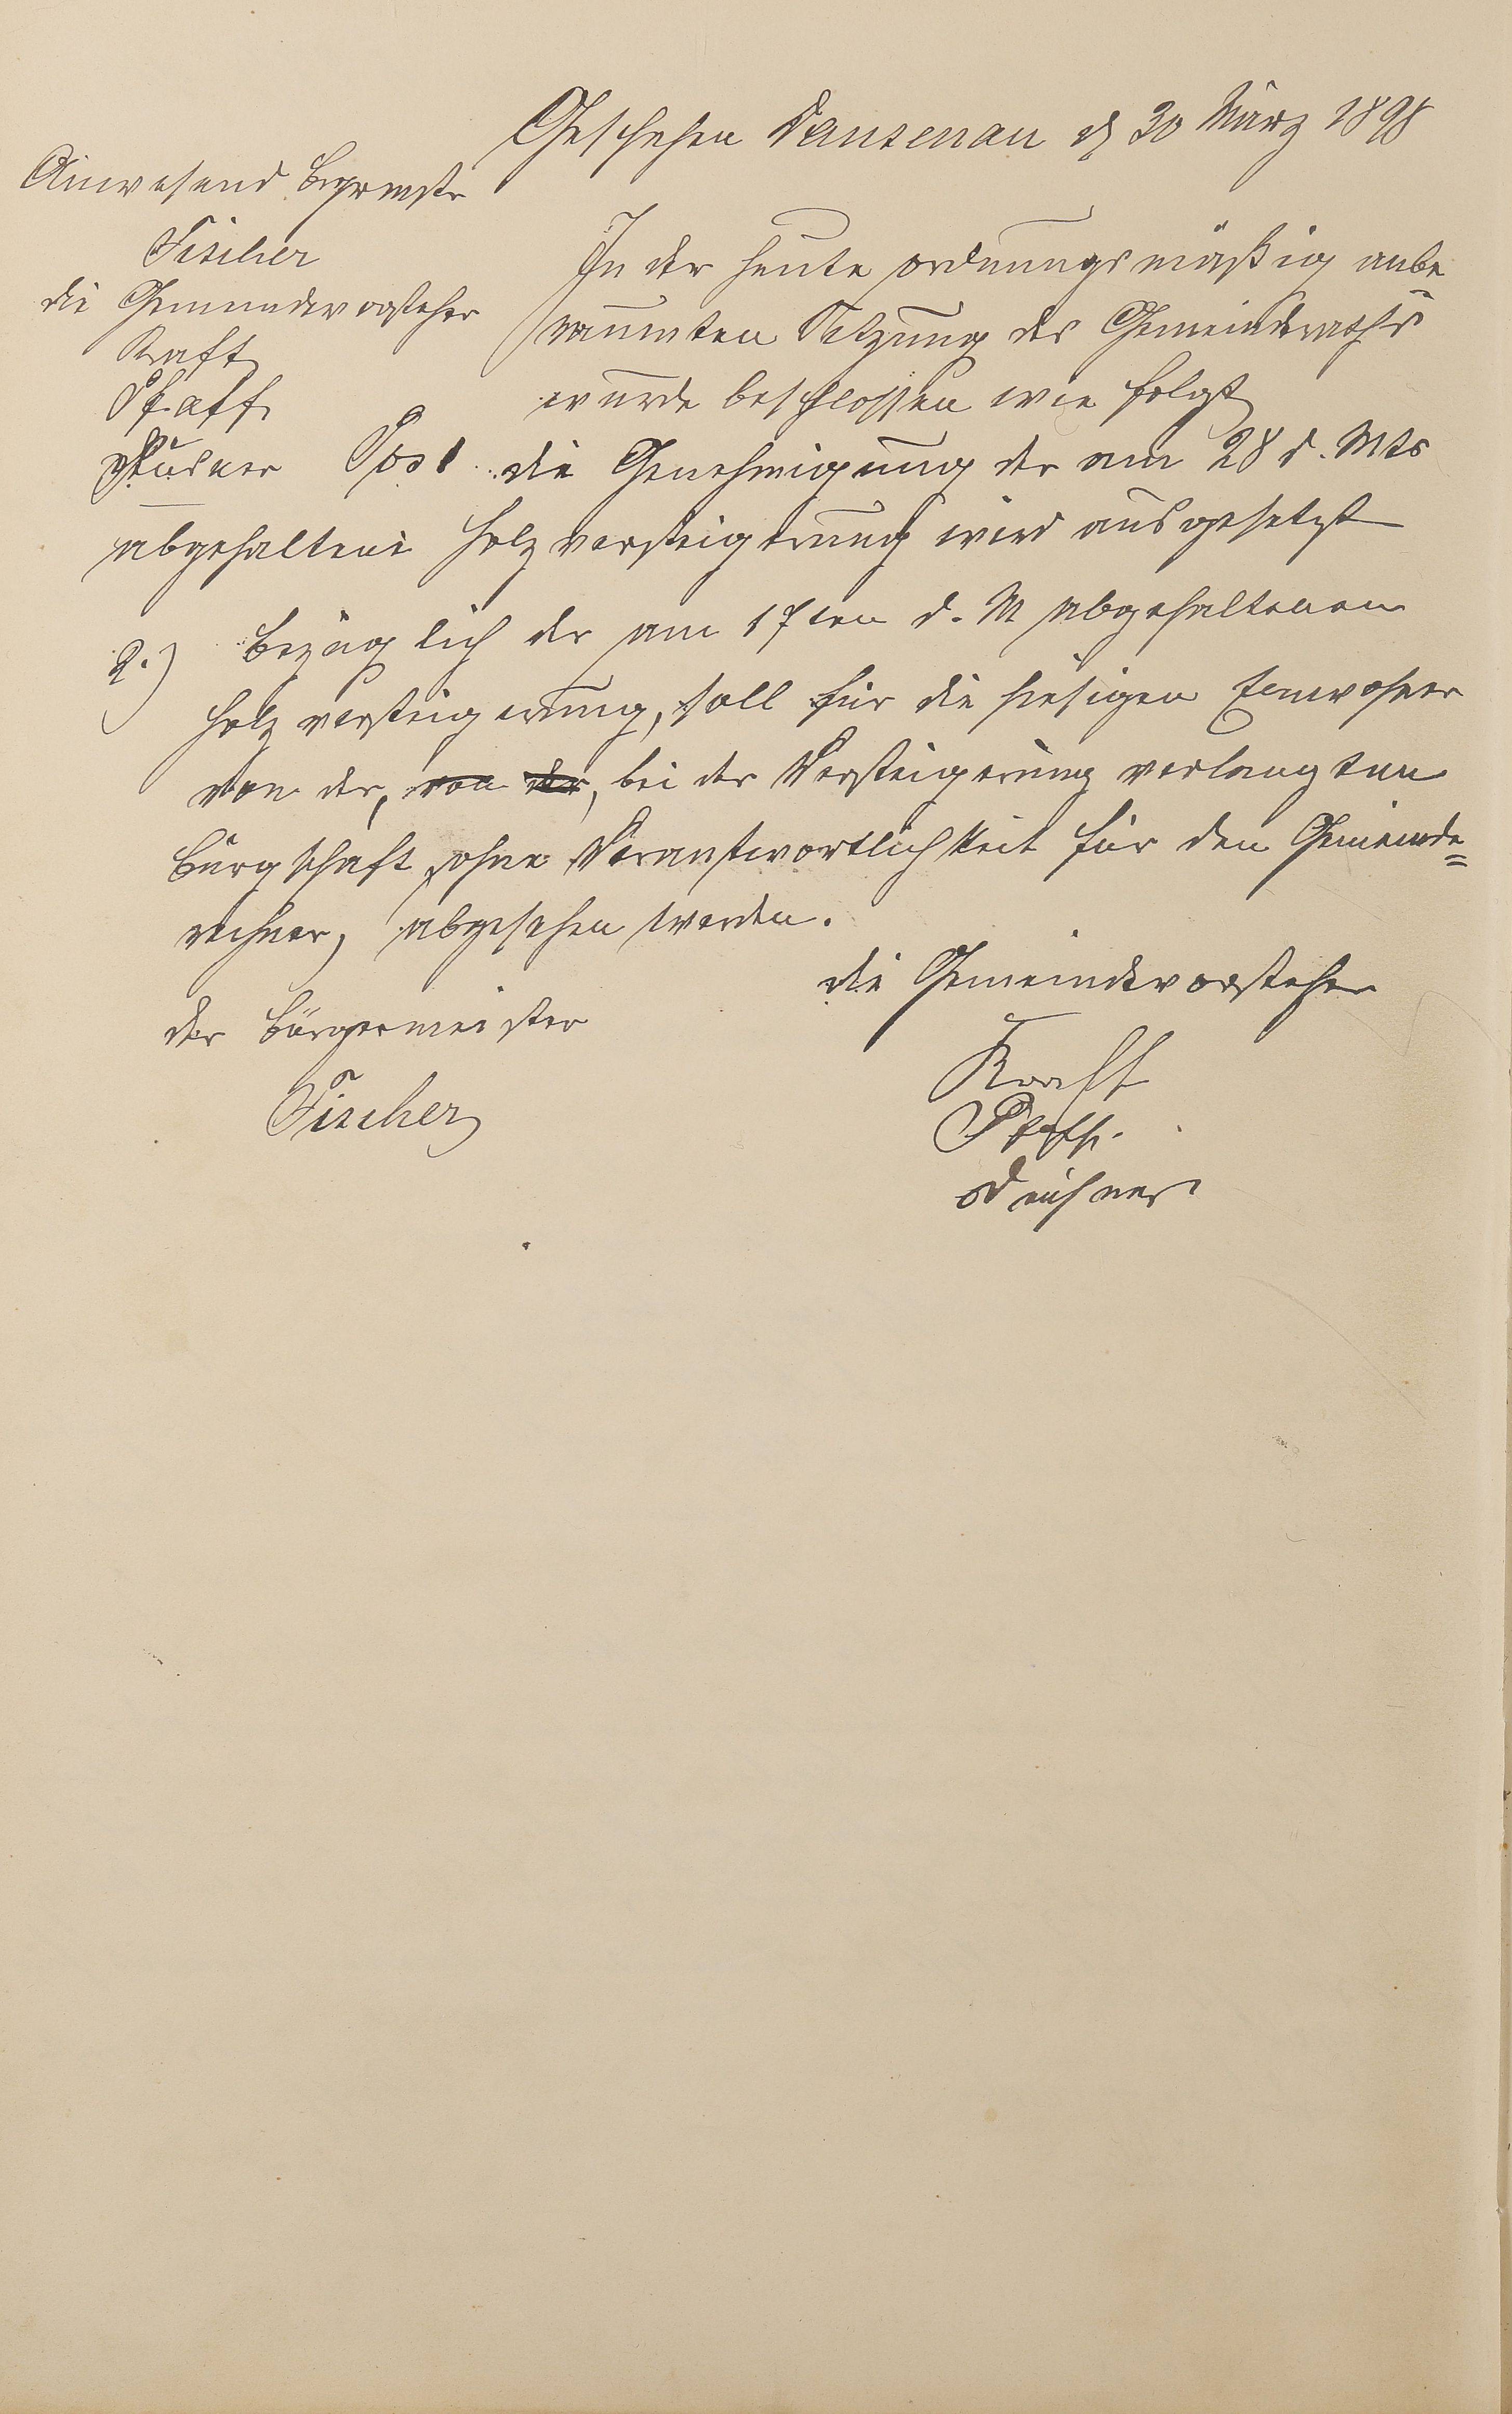 Geschehen Dausenau d 30 März 1898
Anwesend Bgrmstr
Fischer
die Gemeindevorsteher
Kraft
Pfaff
In der heute ordnungsmäßig anbe
raumten Sitzung des Gemeinderaths
wurde beschlossen wie folgt
Pos 1 die Genehmigung der am 28 d. Mts
abgehaltene Holzversteigerung wird ausgesetzt
2.) bezüglich der am 17ten d. M abgehaltenen
Holzversteigerung, soll für die hiesigen Einwohner
von der, von der, bei der Versteigerung verlangten
Bürgschaft, ohne Verantwortlichkeit für den Gemeinde=
rechner, abgesehen werden.
der Bürgermeister
Fischer
die Gemeindevorsteher
Kraft
Pfaff.